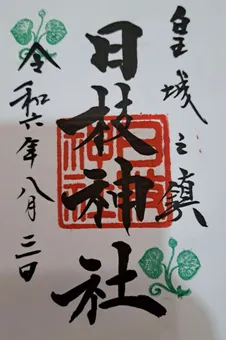 皇城之鎮
日枝神社
令和六年八月三日